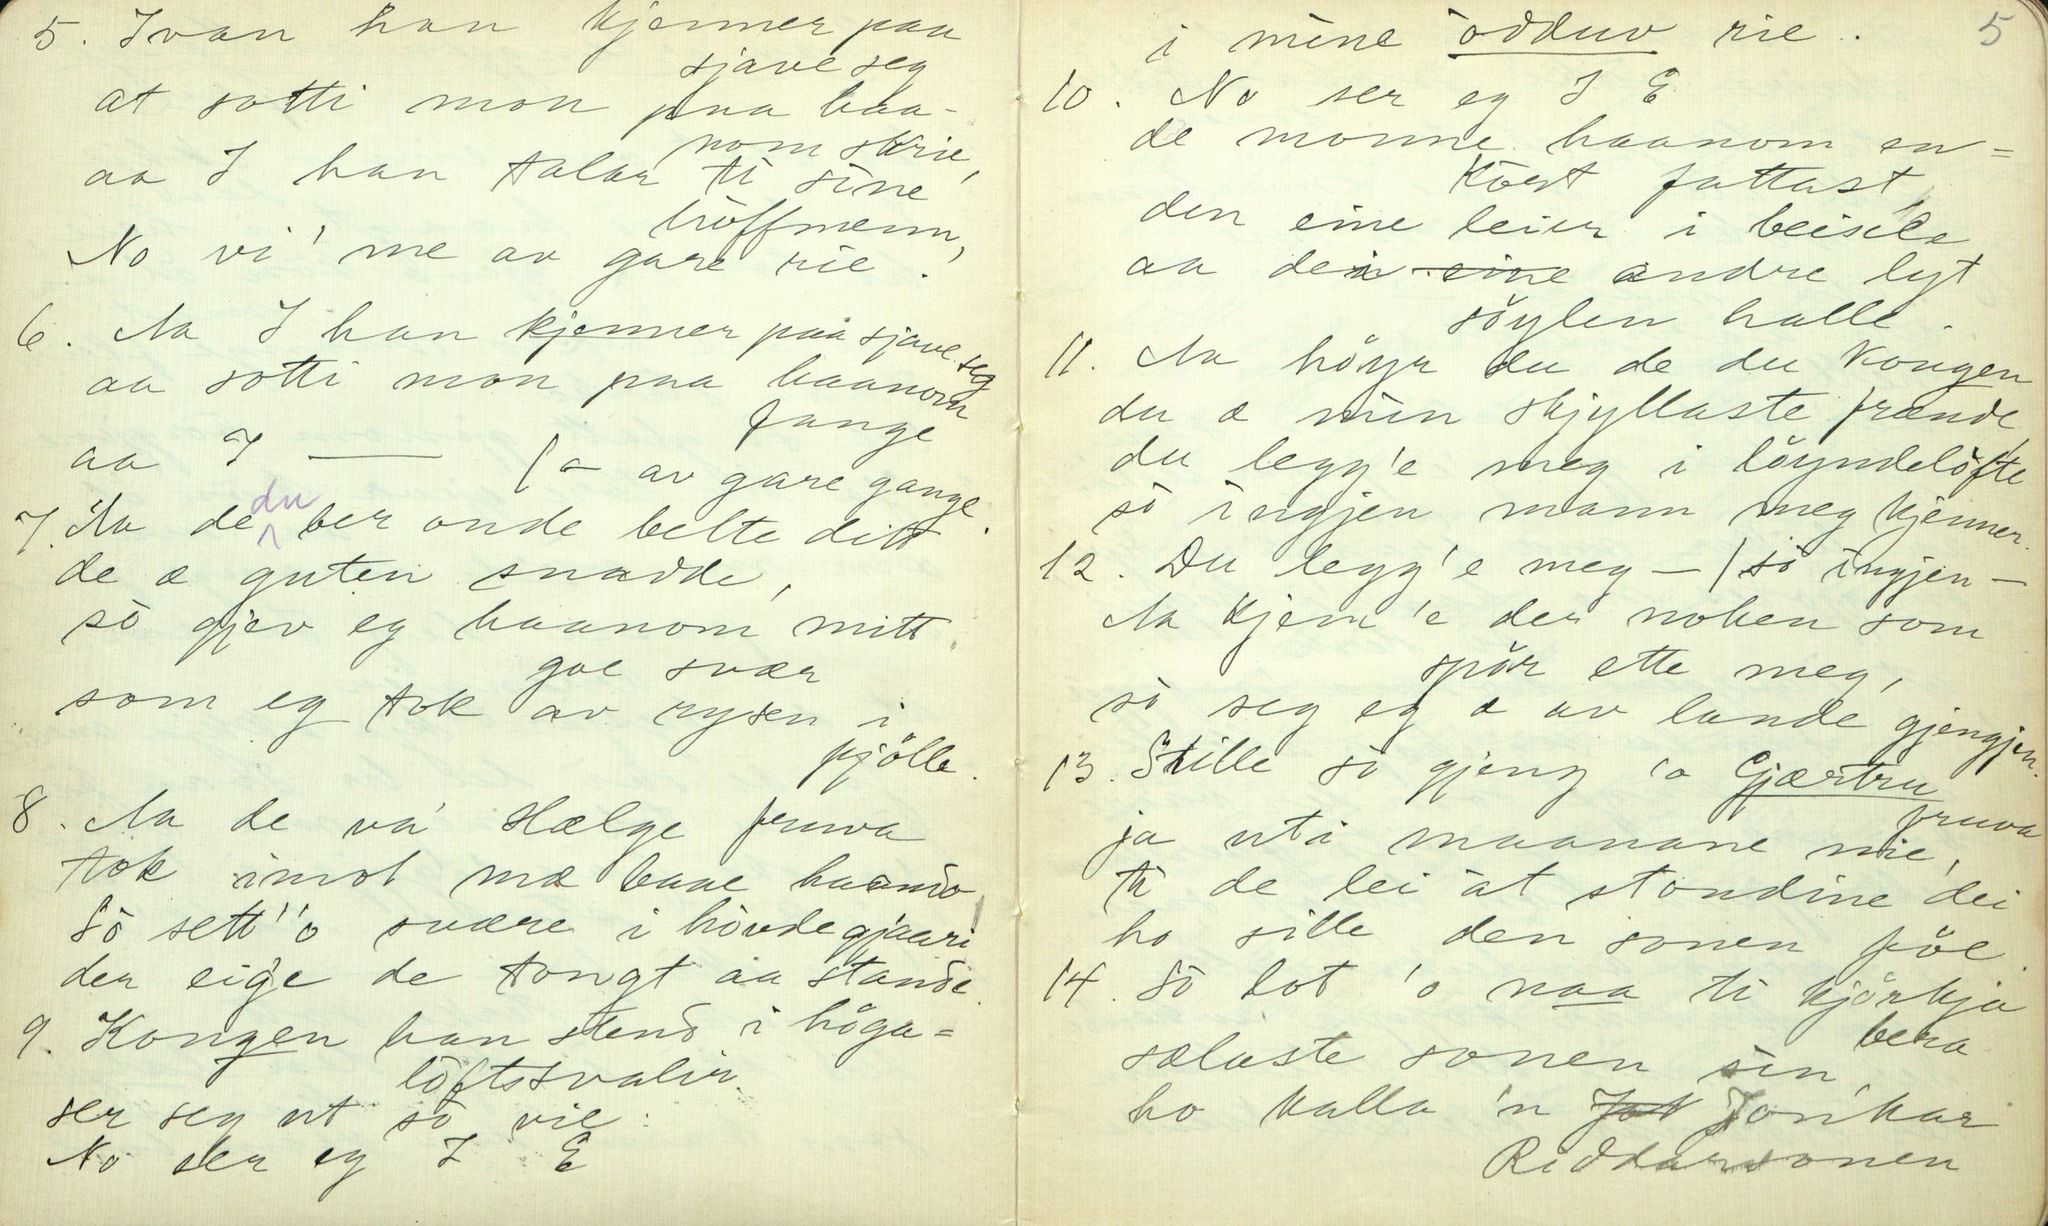 5. Ivan han kjenner paa
sjave seg
at sotti mon paa haa-
nom skrie,
aa I han talar ti sine
höffmenn,
No vi' me av gare rie.'
6. Aa I han kjenner paa sjave seg
aa sotti mon paa haanom
gange
aa I — / – av gare gange.
7. Aa de du ber onde belte ditt
de æ guten snadde,
so gjev eg haanom mitt
goe svær
som eg tok av rysen i
fjölle.
8. Aa de va' Hælge fruva
tok imot mæ baae hando
So sett' 'o svære i hövdegjaari
der eige de tongt aa stande.
9. Kongen han stend i höga=
löftssvalin
ser seg ut so vie:
No ser eg I E
5
i mine odduv rie.
10. No ser eg I E
de monne haanom en=
kört fattast,
den eine leier i beisele
aa dein eine andre lyt
söylen halle.
11. Aa höyr du de du Kongen
du æ min skjyllaste frænde
du legg'e meg i löyndelöfte
so ingjen mann meg kjenner.
12. Du legg'e meg — / so ingjen —
Aa kjem'e der noken som
spör ette meg,
so seg eg æ av lande gjengjen.
13. Stille so gjeng 'o Gjærtru
fruva
ja uti maanane nie,
ti de lei at stondine dei
ho sille den sonen föe.
14. So lot 'o naa ti kjörkja
bera
sælaste sonen sin,
ho kalla 'n Jon'kar
Riddarsonen